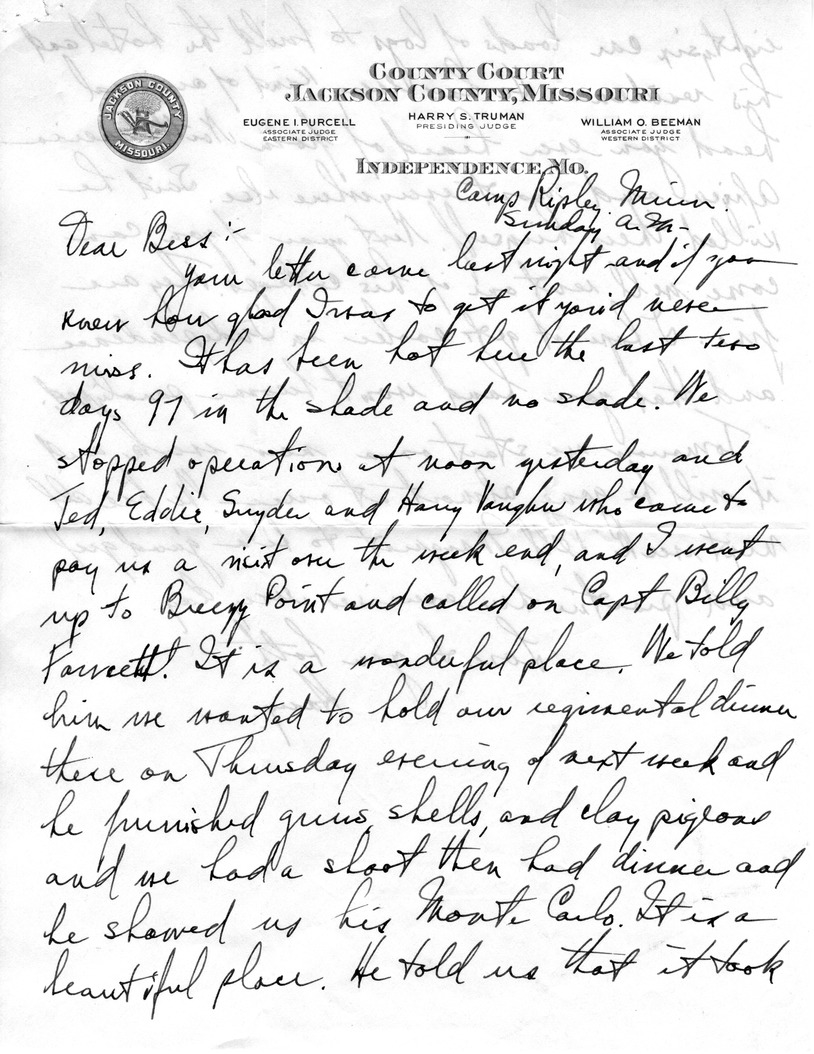 COUNTY COURT
JACKSON COUNTY, MISSOURI
JACKSON COUNTY
MISSOURI
EUGENE I. PURCELL
ASSOCIATE JUDGE
EASTERN DISTRICT
HARRY S. TRUMAN
PRESIDING JUDGE
WILLIAM O. BEEMAN
ASSOCIATE JUDGE
WESTERN DISTRICT
INDEPENDENCE, MO.
Camp Ripley, Minn.
Sunday A.M.
Dear Bess:-
Your letter came last night and if you
knew how glad I was to get it you'd never
miss. It has been hot here the last two
days 97 in the shade and no shade. We
stopped operations at noon yesterday and
Ted, Eddie, Snyder and Harry Vaughn who came to
pay us a visit over the week end, and I went
up to Breezy Point and called on Capt Billy
Fawcett. It is a wonderful place. We told
him we wanted to hold our regimental dinner
there on Thursday evening of next week and
he furnished guns, shells, and clay pigeons
and we had a shoot then had dinner and
he showed us his Monte Carlo. It is a
beautiful place. He told us that it took